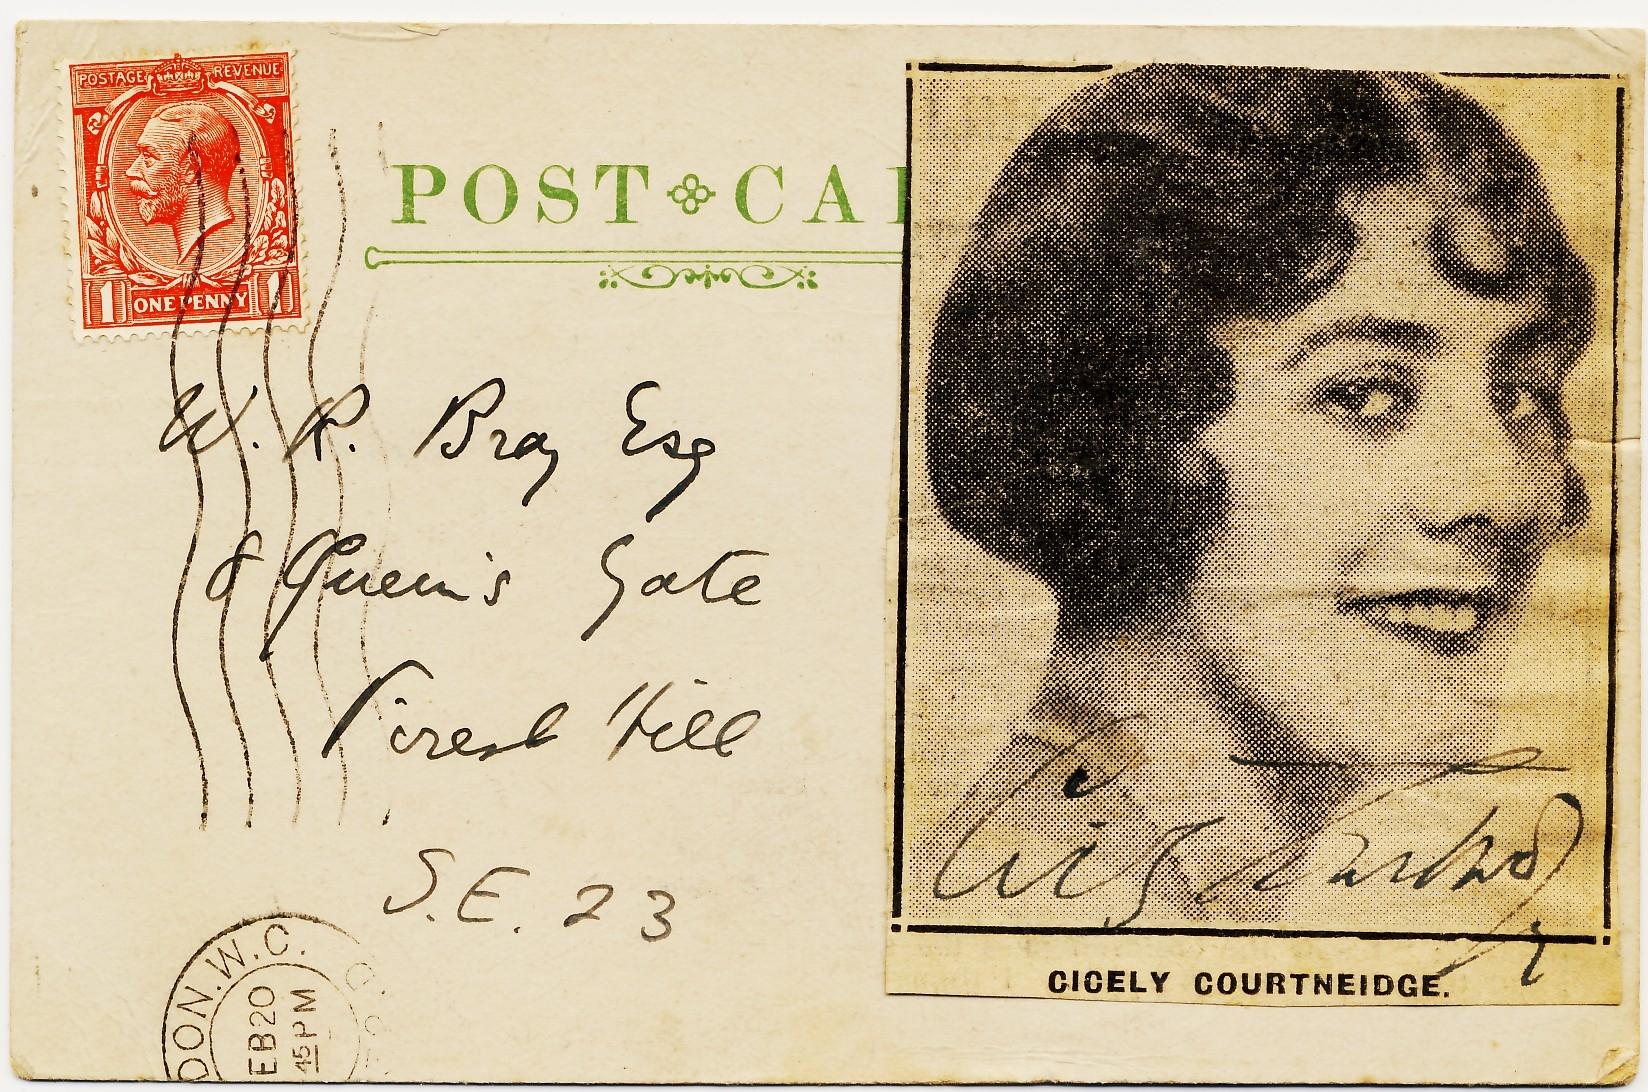 POSTAGE REVENUE
1 ONE PENNY 1
POST CA
W. R. Bray Esq
8 Queen's Gate
Forest Hill
S.E. 23
DON.W.C.
EB20
45PM
CICELY COURTNEIDGE.